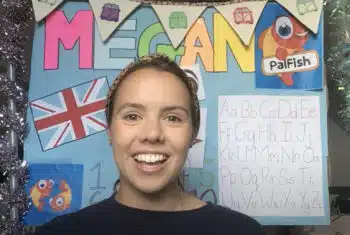 MEGAN
PalFish
Aa Bb Cc Dd Ee
Ff Gg Hh Ii Jj
Kk Ll Mm Nn Oo
Pp Qq Rr Ss Tt
Uu Vv Ww Xx Yy Zz
1